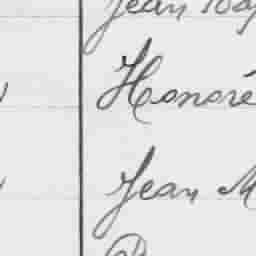 Jean
Honoré
Jean M